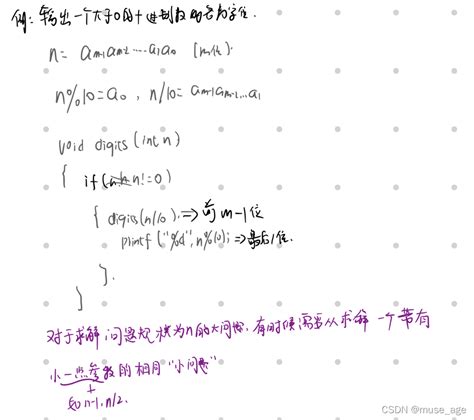 例：输出一个大于0的十进制数的各个字位.
n= aₘ₋₁aₘ₋₂……a₁a₀ (m位).
n%10=a₀, n/10= aₘ₋₁aₘ₋₂…a₁
void digits(int n)
{ if( n!=0)
{ digits(n/10); ⇒前m-1位
printf("%d",n%10); ⇒最后1位.
}.
}
对于求解问题规模为n的大问题,有时候需要从求解一个带有
小一点参数的相同"小问题"
如n-1,n/2.
CSDN @muse_age